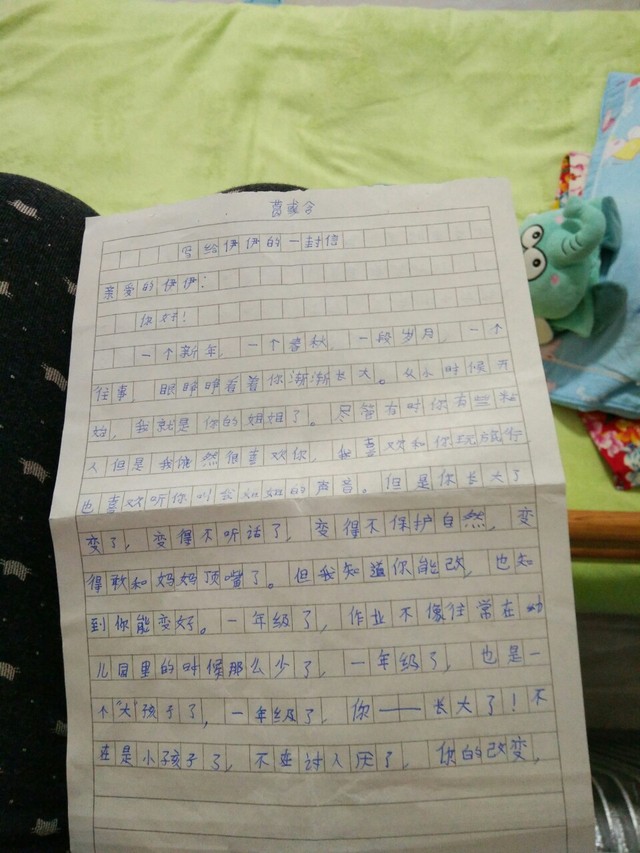 写给伊伊的一封信
亲爱的伊伊:
你好!
一个新年,一个春秋,一段岁月,一个
往事,眼睁睁看着你渐渐长大。从小时候开
始,我就是你的姐姐了。尽管有时你有些粘
人但是我依然很喜欢你,我喜欢和你玩
也喜欢听你叫长姐姐的声音。但是你长大了
变了,变得不听话了,变得不保护自然,变
得敢和妈妈顶嘴了。但我知道你能改,也知
到你能变好。一年级了,作业不像往常在幼
儿园里的时候那么少了,一年级了,也是一
个“大”孩子了,一年级了,你——长大了!不
在是小孩子了,不在讨人厌了,你的改变,